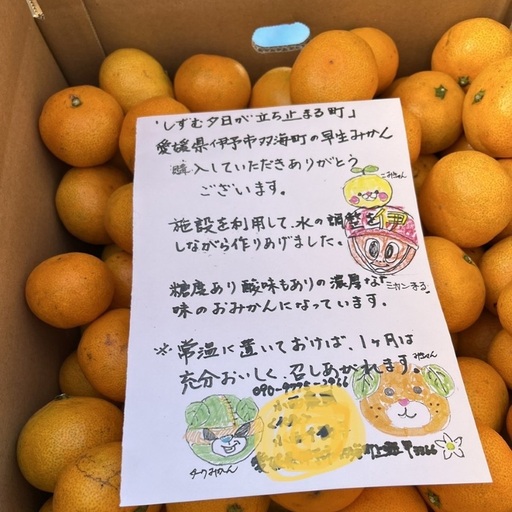 「しずむ夕日が立ち止まる町」
愛媛県伊予市双海町の早生みかん
購入していただきありがとう
ございます。
こみきゃん
施設を利用して、水の調整を
しながら作りあげました。
糖度あり酸味もありの濃厚な
ミカンまる
味のおみかんになっています。
※常温に置いておけば、1ヶ月は
みきゃん
充分おいしく召しあがれます。
ダークみかん